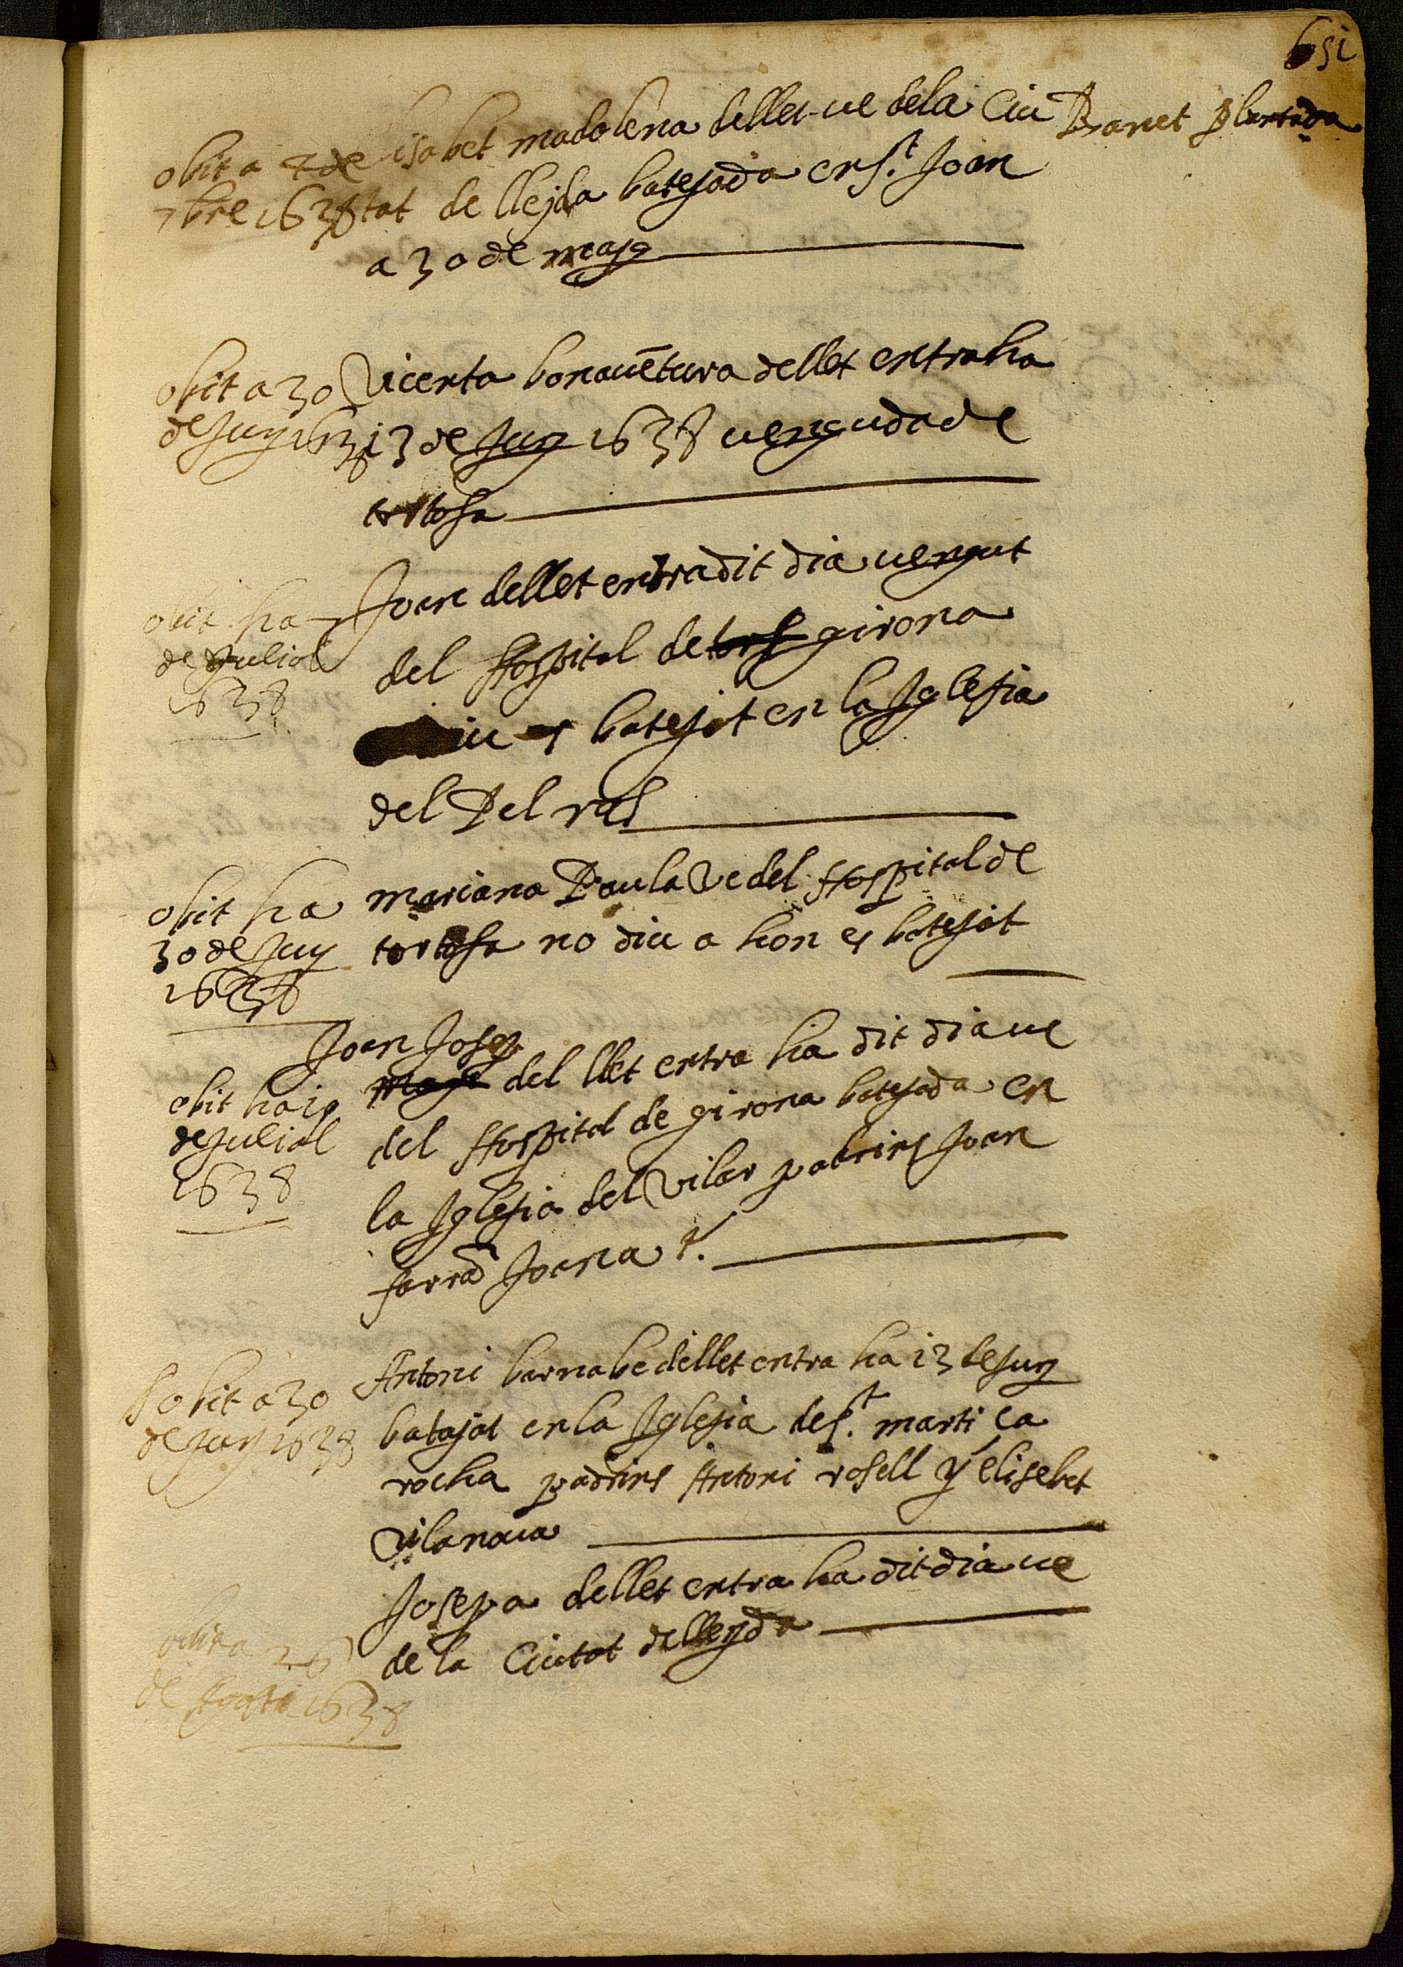 651
obit a 4 de
7bre 1638
isabet madalena dellet ve dela Ciu
tat de llejda batejada en st. Joan
a 30 de maig
Banet
obit a 30
de Juny 1638
Vicenta bonauētura dellet entra ha
13 de Juny 1638 uenguda de
tortosa
obit ha 7
de Juliol
1638
Joan dellet entra dit dia uengut
del Hospital de girona
diu es batejat en la Iglesia
del
obit ha
30 de Juny
1638
mariana Paula Ve del Hospital de
tortosa no diu a hon es batejat
obit ha 19
de Juliol
1638
Joan Josep
del llet entra ha dit dia ue
del Hospital de girona batejada en
la Iglesia del vilar padrins Joan
Joana
obit a 30
de Juny 1638
Antoni barnabe dellet entra ha 13 de Juny
batajat en la Iglesia de st. marti ça
rocha padrins Antoni rosell y elisebet
Vilanoua
obit a 26
de 1638
Josepa dellet entra ha dit dia ue
de la Ciutat de lleyda